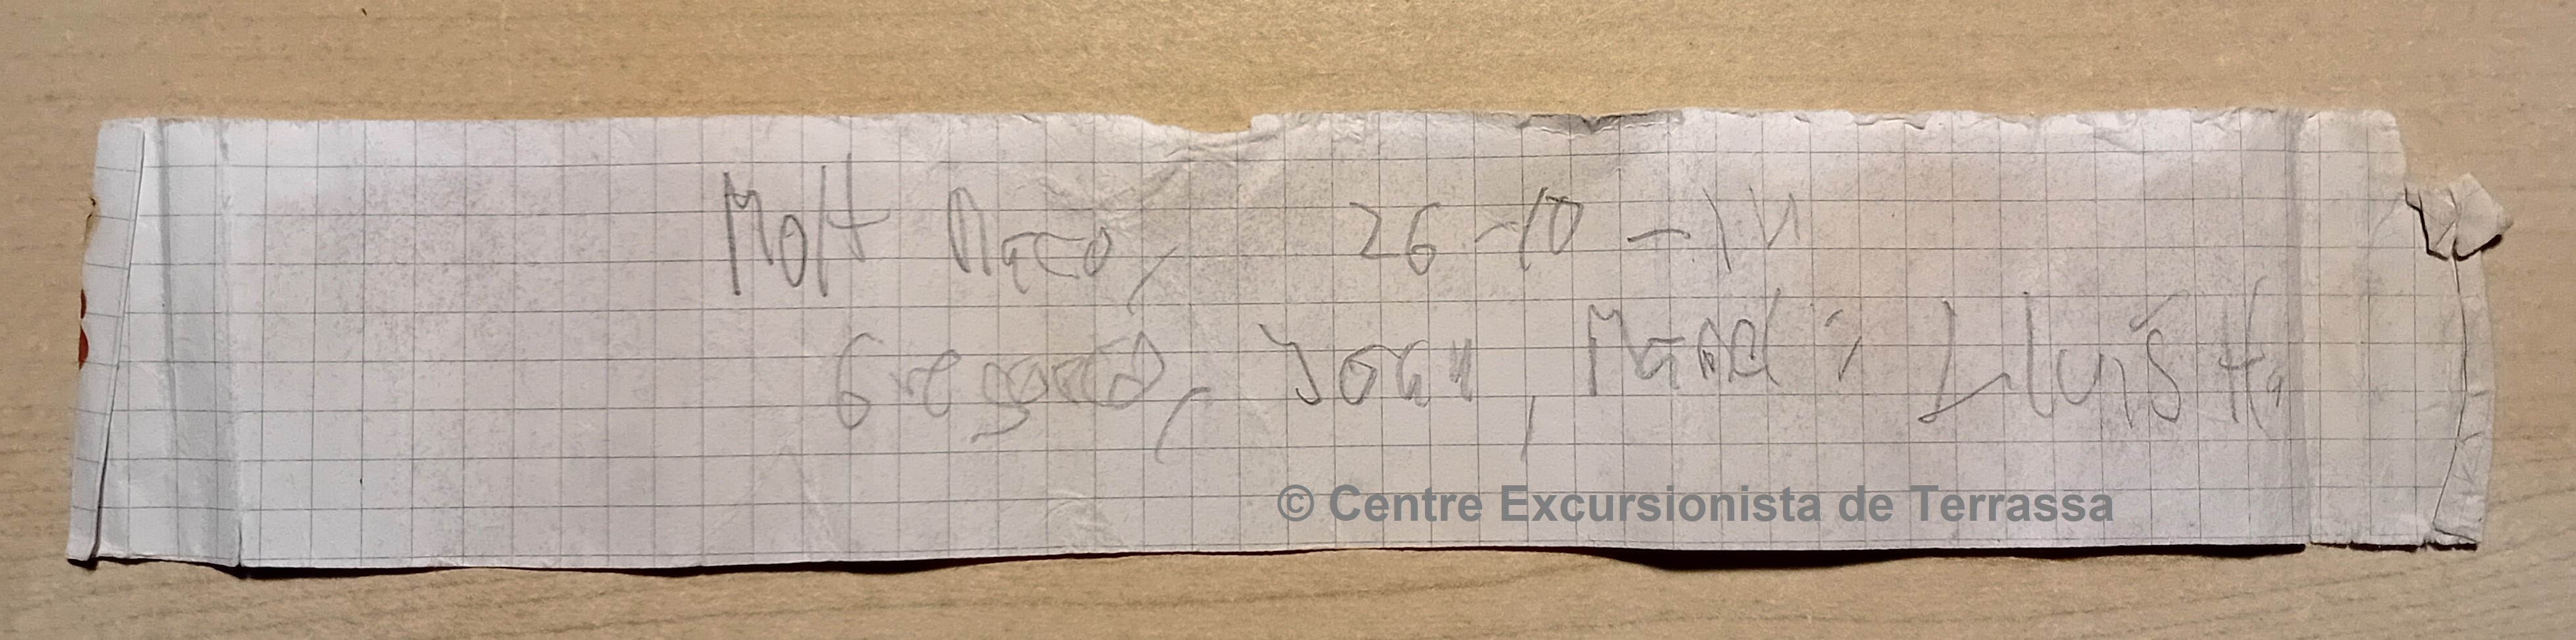 Molt Maco, 26-10-
Gregorio, Joan, Manel i Lluís Ma
© Centre Excursionista de Terrassa